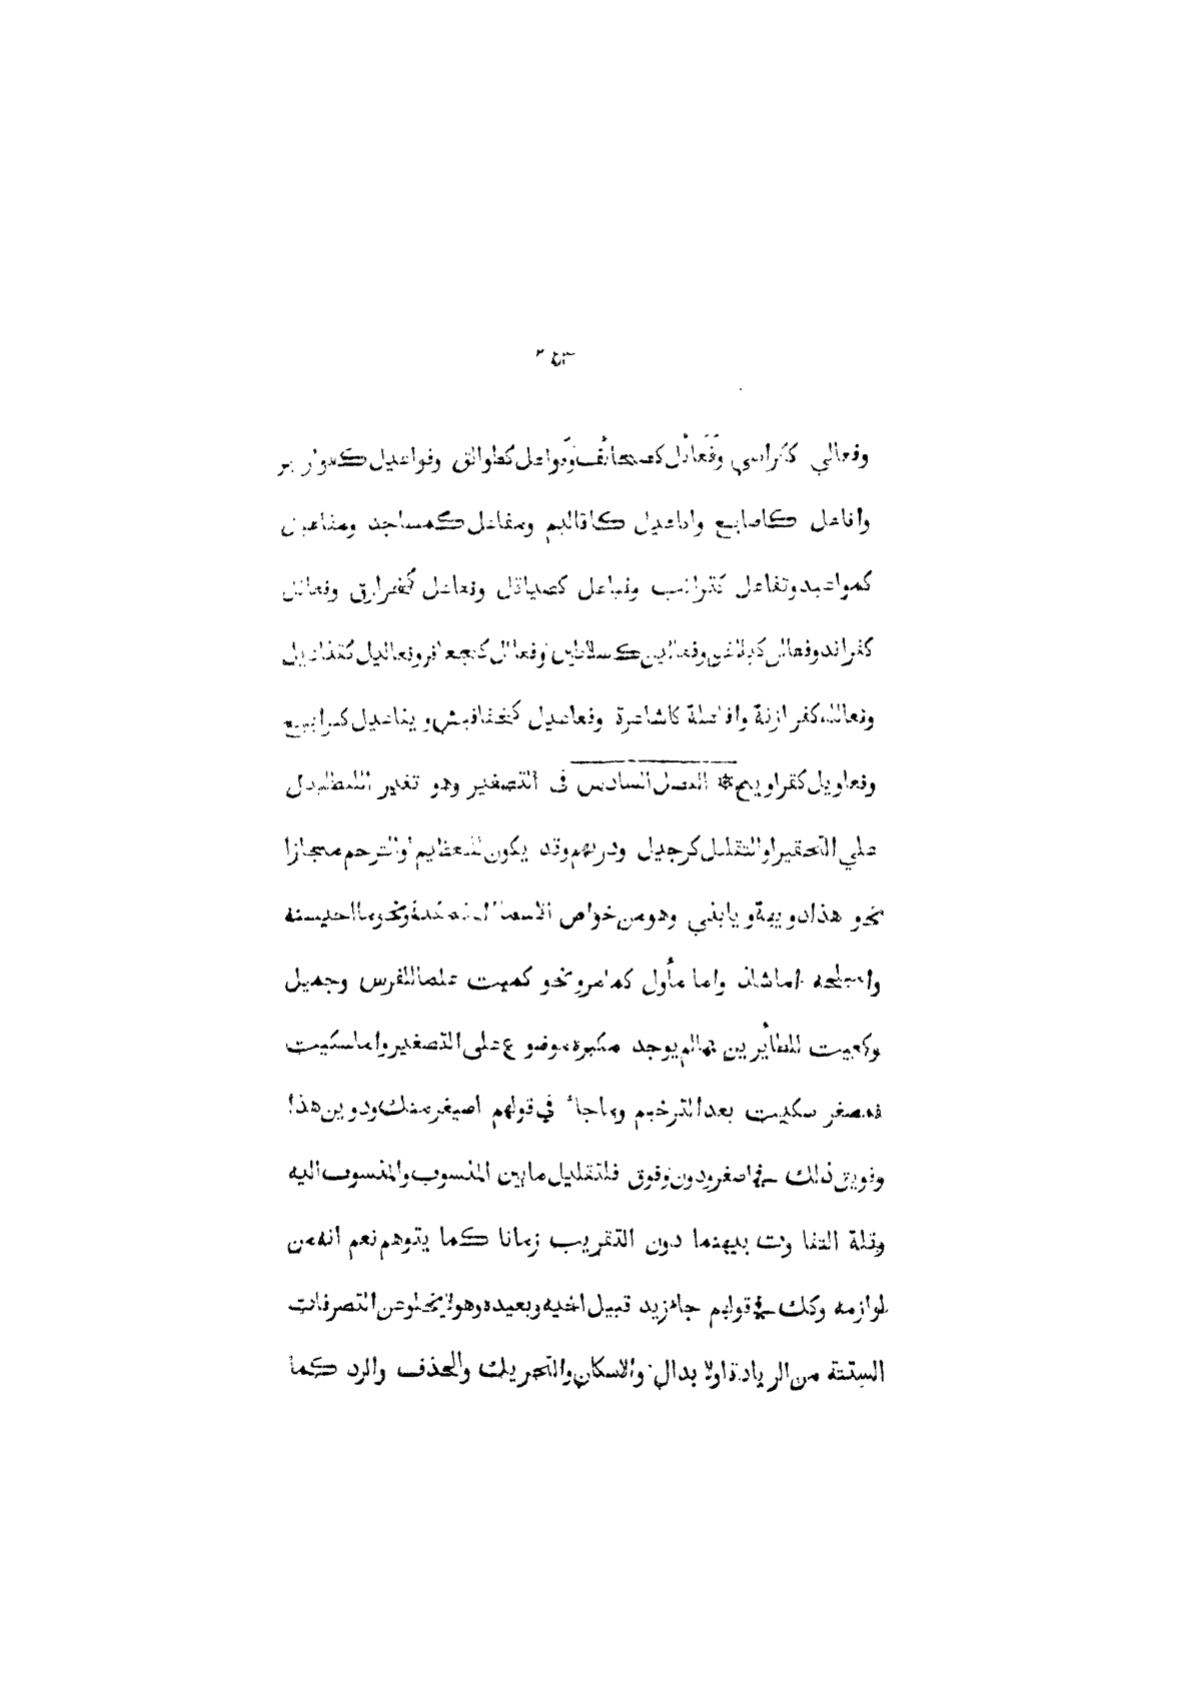 ٢٤٣
وفعالي ككراسي وفَعَائل كصحائف وفَواعل كطوالق وفواعيل
وافاعل كاصابع وافاعيل كاقاليم ومفاعل كمساجد ومفاعيل
كمواعيد وتفاعل وفياعل كصياقل وفعاعل وفعائل
كفرائد وفعالن وفعالين كسلاطين وفعالل كجعافر وفعاليل كقناديل
وفعاللة كفرازنة وافاعلة كاشاعرة وفعاعيل كخفافيش ويفاعيل كيرابيع
وفعاويل كقراويح * الفصل السادس في التصغير وهو تغير اللفظ ليدل
علي التحقير او التقليل كرجيل ودريهم وقد يكون للتعظيم او الترحم مجازا
نحو هذا دويهة ويا بني وهو من خواص الاسماء المتمكنة ونحو ما احيسنه
واميلحه اما شاذ واما مأول كما مر ونحو كميت علما للفرس وجميل
وكعيت للطأيرين مما لم يوجد مكبره موضوع على التصغير واما سكيت
فمصغر سكيت بعد الترخيم وما جاء في قولهم اصيغر منك ودوين هذا
وفويق ذلك في اصغر ودون وفوق فلتقليل ما بين المنسوب والمنسوب اليه
وقلة التفاوت بينهما دون التقريب زمانا كما يتوهم نعم انه من
لوازمه وكك في قولهم جاء زيد قبيل اخيه وبعيده وهو لا يخلو عن التصرفات
الستة من الزيادة او الابدال والاسكان والتحريك والحذف والرد كما